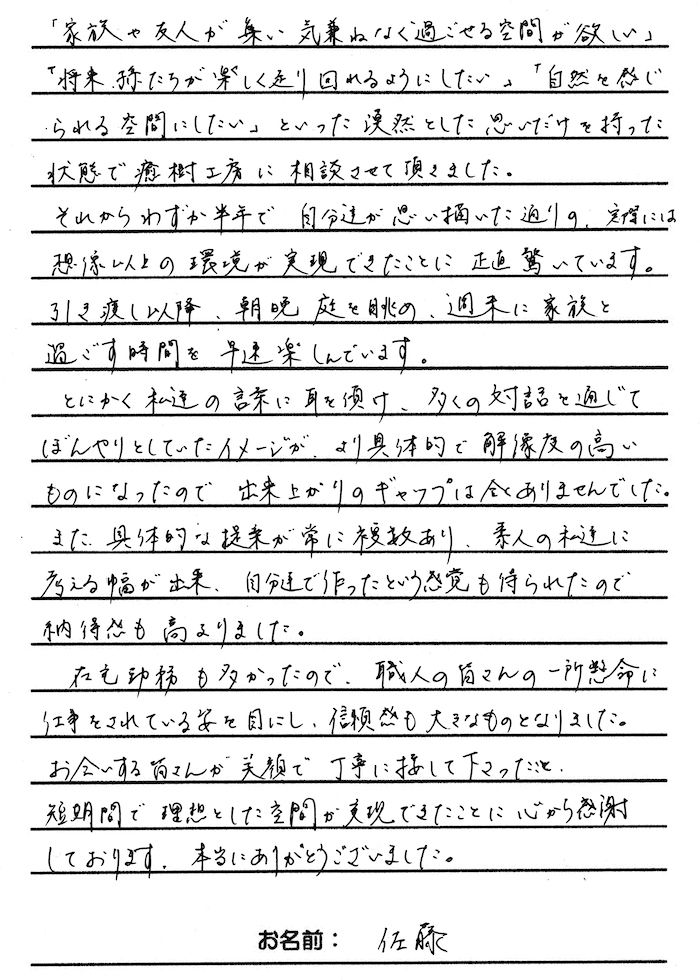 「家族や友人が集い気兼ねなく過ごせる空間が欲しい」
「将来、孫たちが楽しく走り回れるようにしたい」「自然を感じ
られる空間にしたい」といった漠然とした思いだけを持った
状態で癒樹工房に相談させて頂きました。
それからわずか半年で自分達が思い描いた通りの、実際には
想像以上の環境が実現できたことに正直驚いています。
引き渡し以降、朝晩庭を眺め、週末に家族と
過ごす時間を早速楽しんでいます。
とにかく私達の言葉に耳を傾け、多くの対話を通じて
ぼんやりとしていたイメージが、より具体的で解像度の高い
ものになったので出来上がりのギャップは全くありませんでした。
また、具体的な提案が常に複数あり、素人の私達に
考える幅が出来、自分達で作ったという感覚も得られたので
納得感も高まりました。
在宅勤務も多かったので、職人の皆さんの一所懸命に
仕事をされている姿を目にし、信頼感も大きなものとなりました。
お会いする皆さんが笑顔で丁寧に接して下さったこと、
短期間で理想とした空間が実現できたことに心から感謝
しております。本当にありがとうございました。
お名前： 佐藤